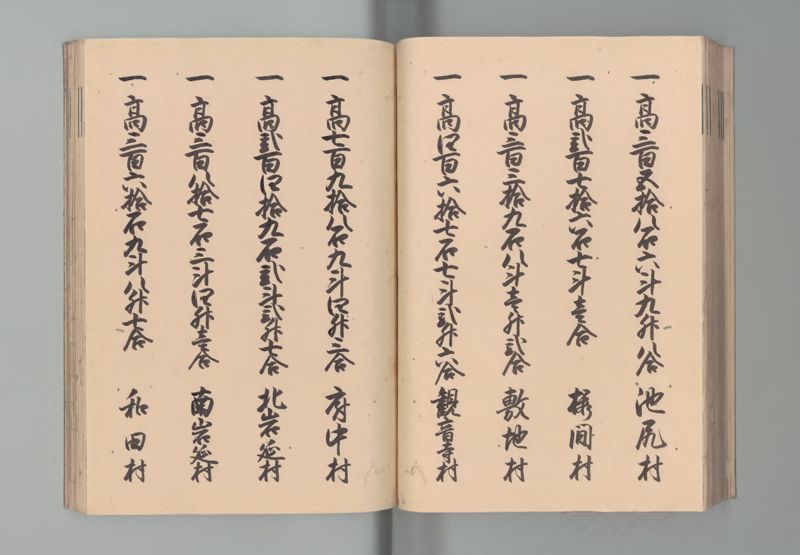 一 高三百五拾八石六斗九升八合 池尻村
一 高弐百七拾六石七斗壱合 桜間村
一 高三百三拾九石八斗壱升弐合 敷地村
一 高四百六拾七石七斗弐升六合 観音寺村
一 高七百九拾八石九斗四升三合 府中村
一 高弐百四拾九石弐斗弐升七合 北岩延村
一 高三百八拾七石三斗四升壱合 南岩延村
一 高三百六拾石九斗八升七合 和田村